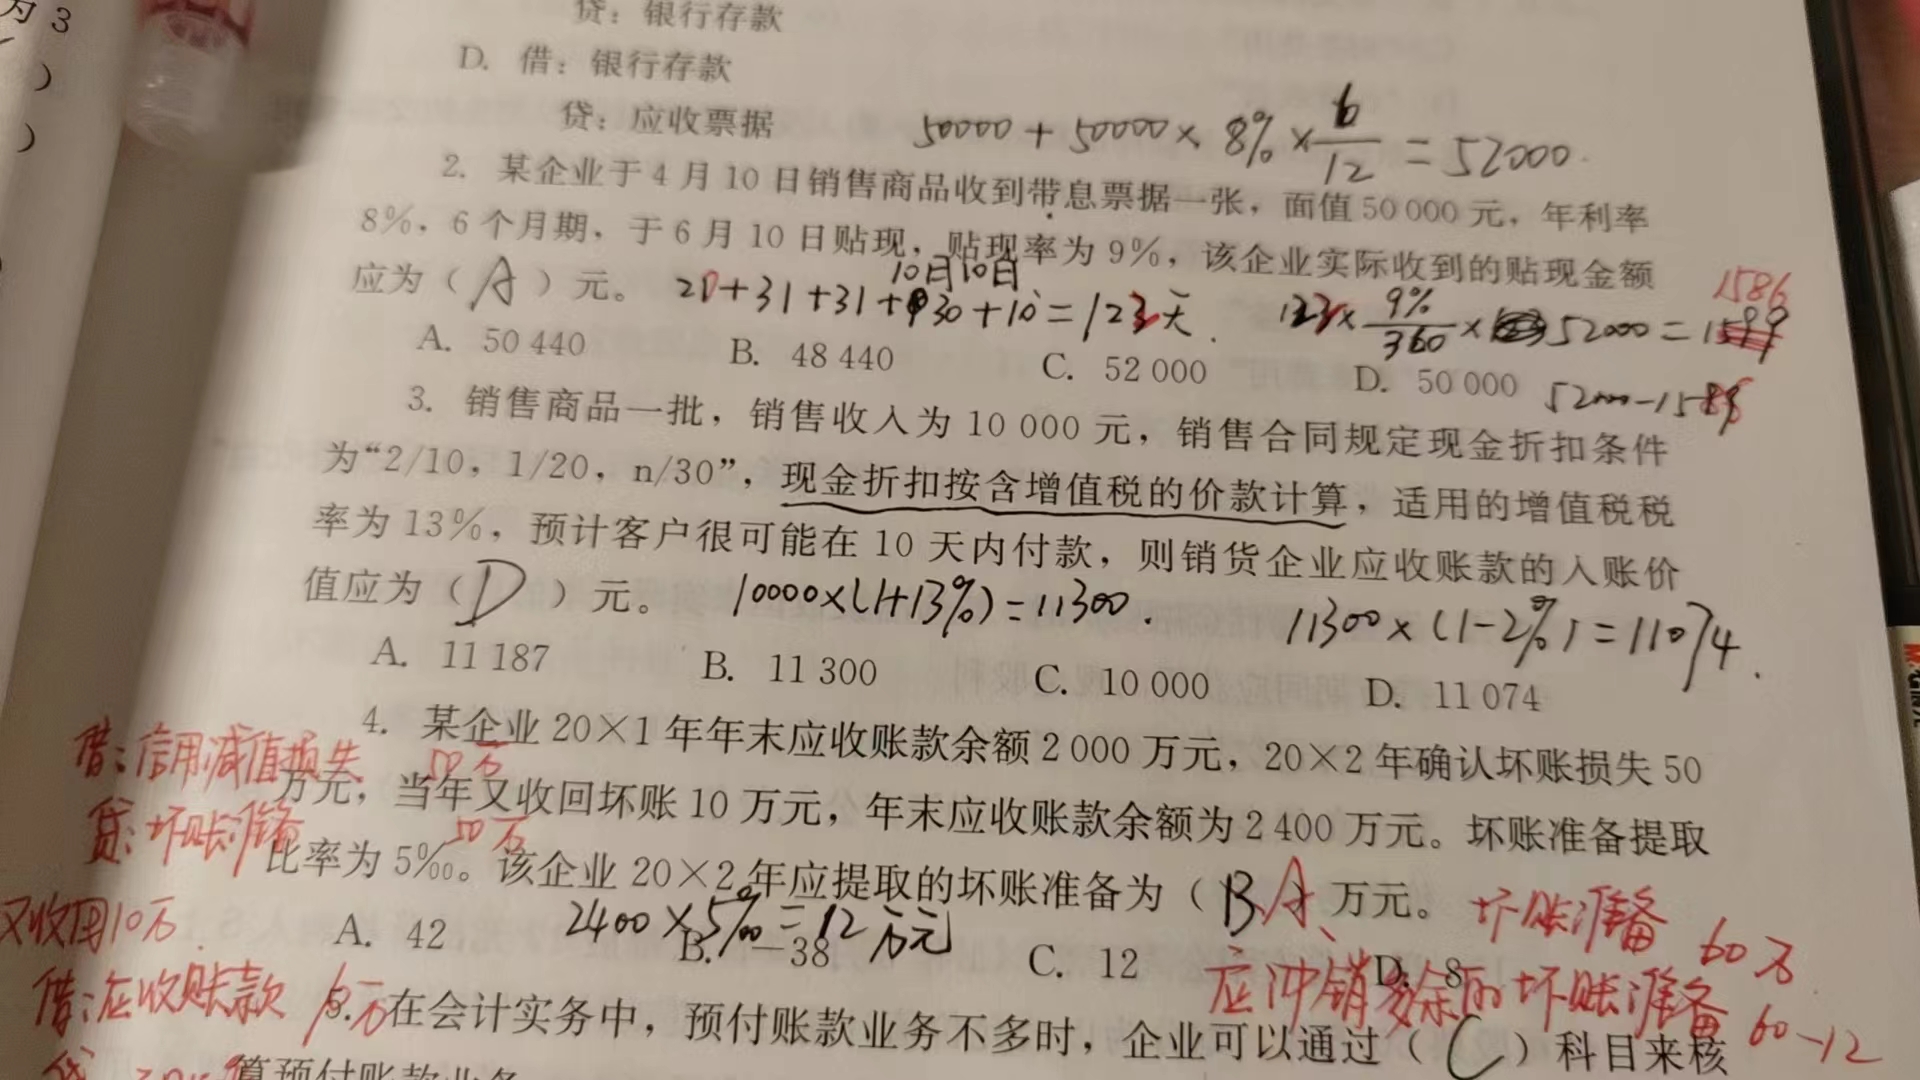 为 3
)
)
贷：银行存款
D. 借：银行存款
贷：应收票据
50000 + 50000 × 8% × 6/12 = 52000.
2. 某企业于 4 月 10 日销售商品收到带息票据一张，面值 50 000 元，年利率
8%，6 个月期，于 6 月 10 日贴现，贴现率为 9%，该企业实际收到的贴现金额
10月10日
应为（ A ）元。
+31+31+30+10=123天.
× 9%/360 × 52000 =
1586
A. 50 440 B. 48 440 C. 52 000 D. 50 000
52000-
3. 销售商品一批，销售收入为 10 000 元，销售合同规定现金折扣条件
为“2/10，1/20，n/30”，现金折扣按含增值税的价款计算，适用的增值税税
率为 13%，预计客户很可能在 10 天内付款，则销货企业应收账款的入账价
值应为（ D ）元。 10000×(1+13%)=11300. 11300×(1-2%)=11074.
A. 11 187 B. 11 300 C. 10 000 D. 11 074
4. 某企业 20×1 年年末应收账款余额 2 000 万元，20×2 年确认坏账损失 50
借：信用减值损失 50万
万元，当年又收回坏账 10 万元，年末应收账款余额为 2 400 万元。坏账准备提取
贷：坏账准备 50万
比率为 5‰。该企业 20×2 年应提取的坏账准备为（ B A ）万元。
坏账准备 60万
又收回10万
2400×5‰=12万元
A. 42 B. －38 C. 12 D. 8
应冲销多余的坏账准备 60-12
借：应收账款 10万
5. 在会计实务中，预付账款业务不多时，企业可以通过（ C ）科目来核
算预付账款业务